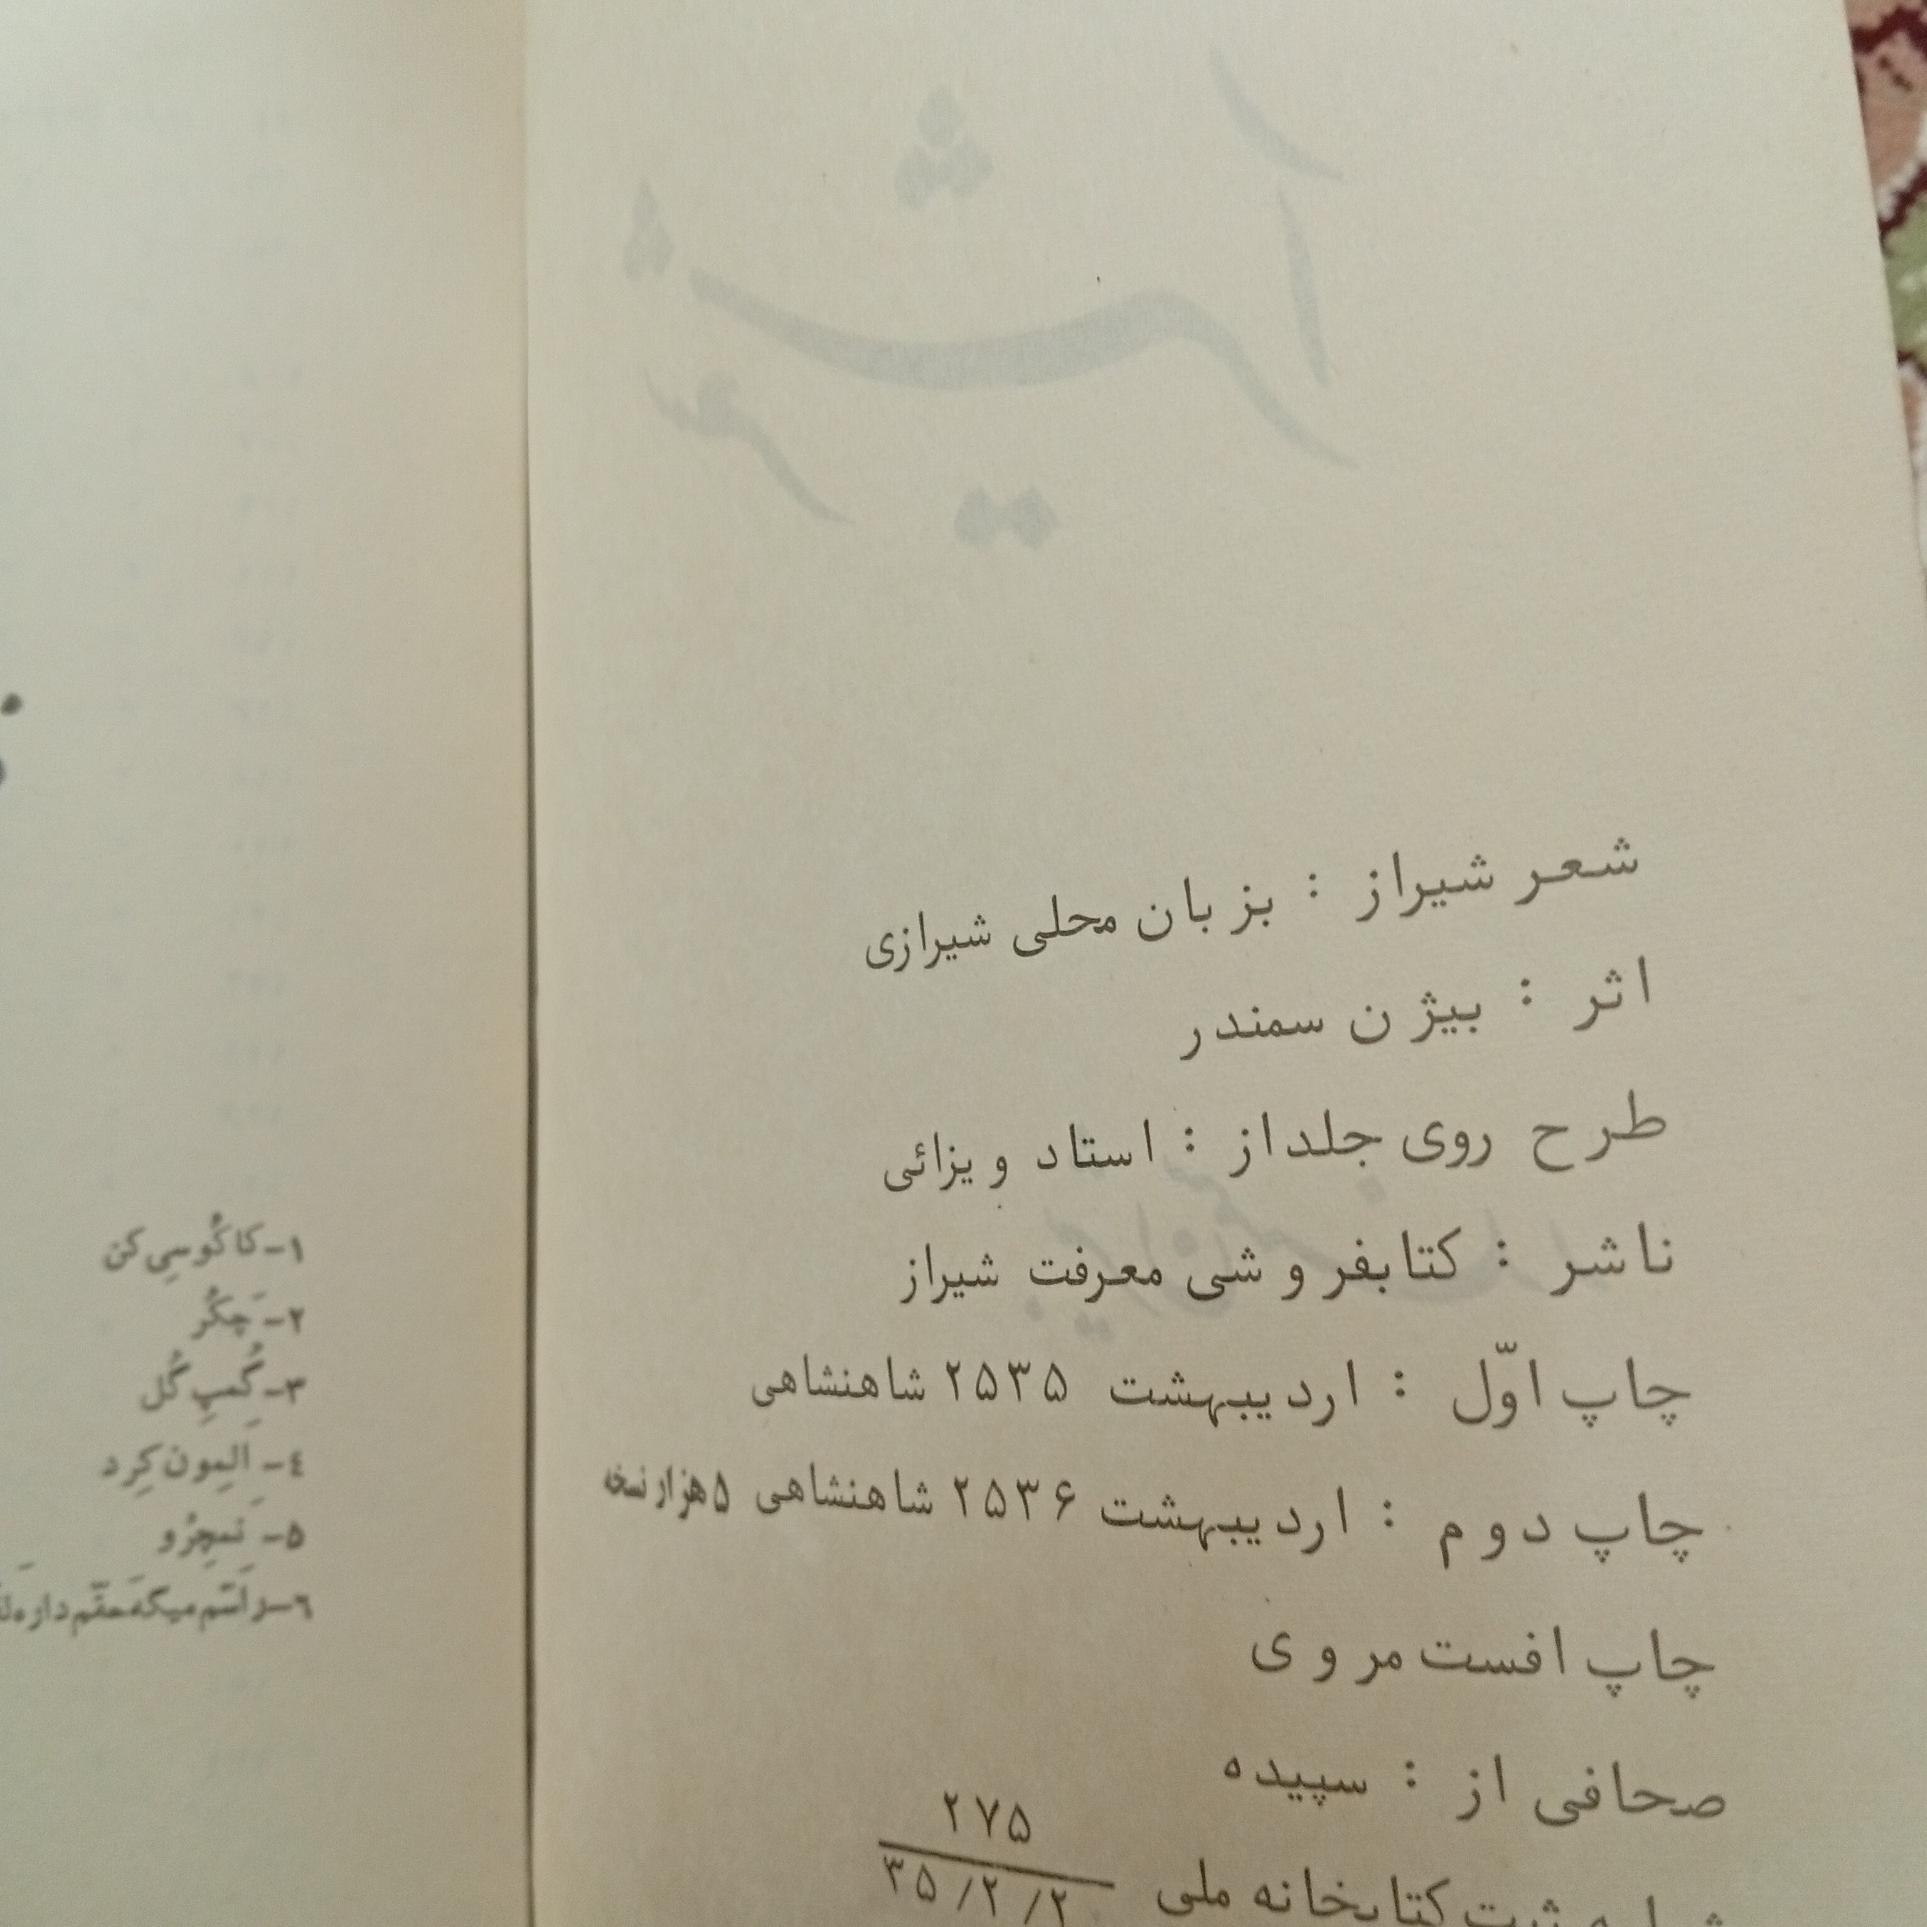 شعر شیراز : بزبان محلی شیرازی
اثر : بیژن سمندر
طرح روی جلد از : استاد ویزائی
ناشر : کتابفروشی معرفت شیراز
چاپ اوّل : اردیبهشت ۲۵۳۵ شاهنشاهی
چاپ دوم : اردیبهشت ۲۵۳۶ شاهنشاهی ۵ هزار نسخه
چاپ افست مروی
صحافی از : سپیده
۲۷۵
شماره ثبت کتابخانه ملی ۳۵/۲/۲
۱- کاکُوسِی کن
۲- چَکُر
۳- گُمپِ گُل
٤- اَلِمون کِرد
۵-
٦- راسَّم میگه حقّم داره